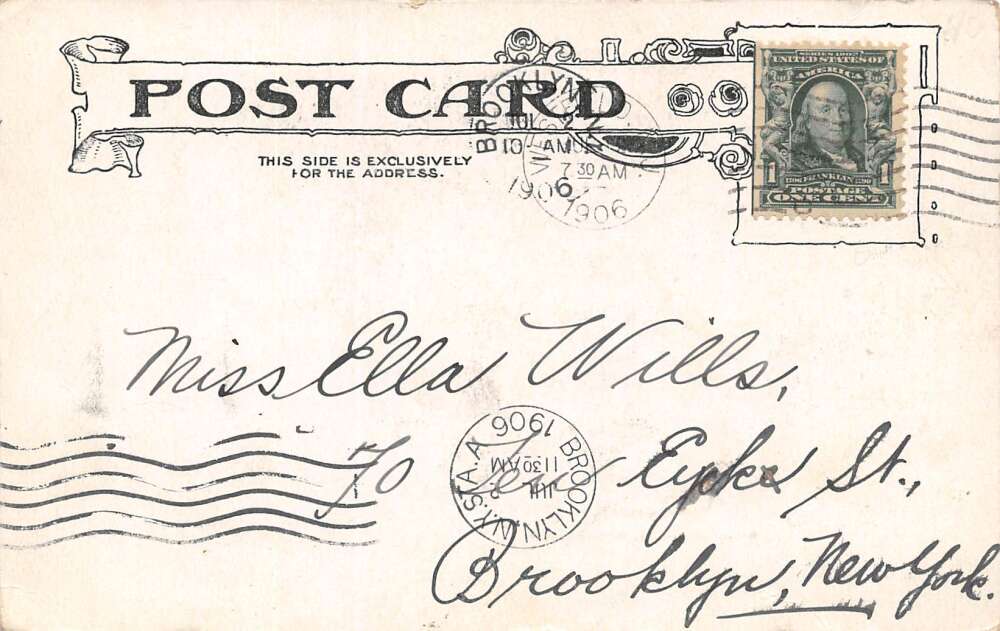 POST CARD
THIS SIDE IS EXCLUSIVELY
FOR THE ADDRESS.
BROOKLYN
10 AM
1906
7 30 AM
1906
SERIES 1902
UNITED STATES OF
AMERICA
FRANKLIN
1 1
POSTAGE
ONE CENT
Miss Ella Wills,
70 Ten Eycke St.,
Brooklyn, New York.
BROOKLYN, N.Y. STA. A
JUL
11 30 AM
1906